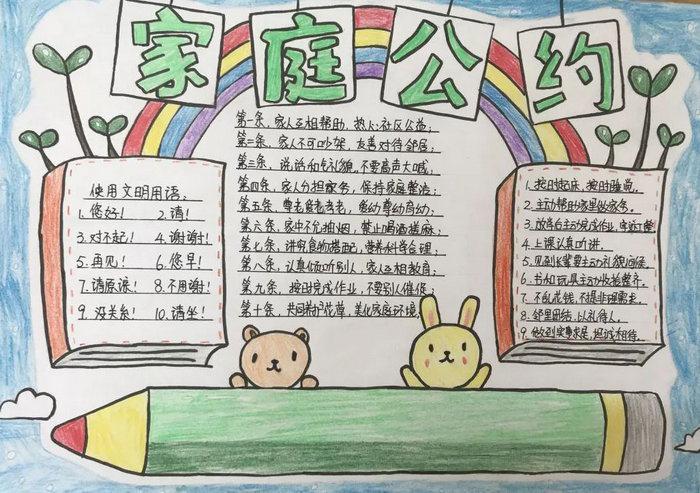 家庭公约
使用文明用语:
1.您好! 2.请!
3.对不起! 4.谢谢!
5.再见! 6.您早!
7.请原谅! 8.不用谢!
9.没关系! 10.请坐!
第一条、家人互相帮助,热心社区公益;
第二条、家人不可吵架,友善对待邻居;
第三条、说话和气礼貌,不要高声大喊;
第四条、家分担家务,保持家庭整洁;
第五条、尊老爱老孝老,爱幼尊幼育幼;
第六条、家中不允抽烟,禁止喝酒搓麻;
第七条、讲究食物搭配,营养科学合理;
第八条、认真倾听别人,家人互相教育;
第九条、按时完成作业,不要别人催促;
第十条、共同养护花草,美化家庭环境,
1.按时起床,按时睡觉.
2.主动帮助家里做家务.
3.放学后主动完成作业,
4.上课认真听讲.
5.见到长辈要主动礼貌问候.
6.书和玩具主动收拾整齐.
7.不乱花钱,不提非理需求.
8.邻里团结,以礼待人.
9.做到实事求是,坦诚相待.